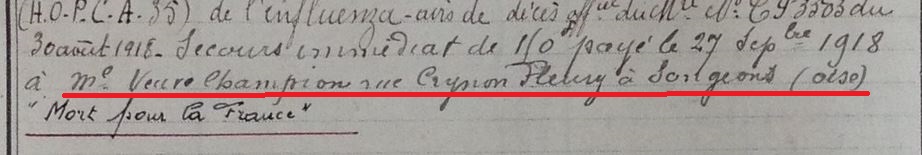 (H.O.P.C.A. 35) de l'influenza - avis de décès off^uel du M^re N° CY 3303 du
30 août 1918 - Secours immédiat de 150^f payé le 27 Sep^bre 1918
à M^e Veuve Champion rue Crynon Fleury à Songeons (oise)
"Mort pour la France"